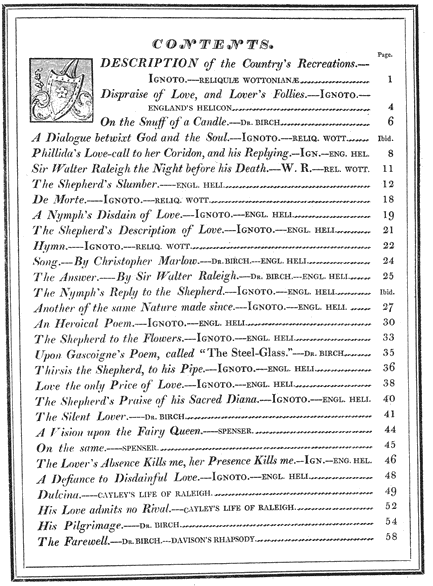 CONTENTS.
Page.
DESCRIPTION of the Country's Recreations.—
IGNOTO.—RELIQUIÆ WOTTONIANÆ 1
Dispraise of Love, and Lover's Follies.—IGNOTO.—
ENGLAND'S HELICON 4
On the Snuff of a Candle.—DR. BIRCH 6
A Dialogue betwixt God and the Soul.—IGNOTO.—RELIQ. WOTT. Ibid.
Phillida's Love-call to her Coridon, and his Replying.—IGN.—ENG. HEL. 8
Sir Walter Raleigh the Night before his Death.—W. R.—REL. WOTT. 11
The Shepherd's Slumber.—ENGL. HELI. 12
De Morte.—IGNOTO.—RELIQ. WOTT. 18
A Nymph's Disdain of Love.—IGNOTO.—ENGL. HELI. 19
The Shepherd's Description of Love.—IGNOTO.—ENGL. HELI. 21
Hymn.—IGNOTO.—RELIQ. WOTT. 22
Song.—By Christopher Marlow.—DR. BIRCH.—ENGL. HELI. 24
The Answer.—By Sir Walter Raleigh.—DR. BIRCH.—ENGL. HELI. 25
The Nymph's Reply to the Shepherd.—IGNOTO.—ENGL. HELI. Ibid.
Another of the same Nature made since.—IGNOTO.—ENGL. HELI. 27
An Heroical Poem.—IGNOTO.—ENGL. HELI. 30
The Shepherd to the Flowers.—IGNOTO.—ENGL. HELI. 33
Upon Gascoigne's Poem, called "The Steel-Glass."—DR. BIRCH. 35
Thirsis the Shepherd, to his Pipe.—IGNOTO.—ENGL. HELI. 36
Love the only Price of Love.—IGNOTO.—ENGL. HELI. 38
The Shepherd's Praise of his Sacred Diana.—IGNOTO.—ENGL. HELI. 40
The Silent Lover.—DR. BIRCH. 41
A Vision upon the Fairy Queen.—SPENSER. 44
On the same.—SPENSER. 45
The Lover's Absence Kills me, her Presence Kills me.—IGN.—ENG. HEL. 46
A Defiance to Disdainful Love.—IGNOTO.—ENGL. HELI. 48
Dulcina.—CAYLEY'S LIFE OF RALEIGH. 49
His Love admits no Rival.—CAYLEY'S LIFE OF RALEIGH. 52
His Pilgrimage.—DR. BIRCH. 54
The Farewell.—DR. BIRCH.—DAVISON'S RHAPSODY. 58